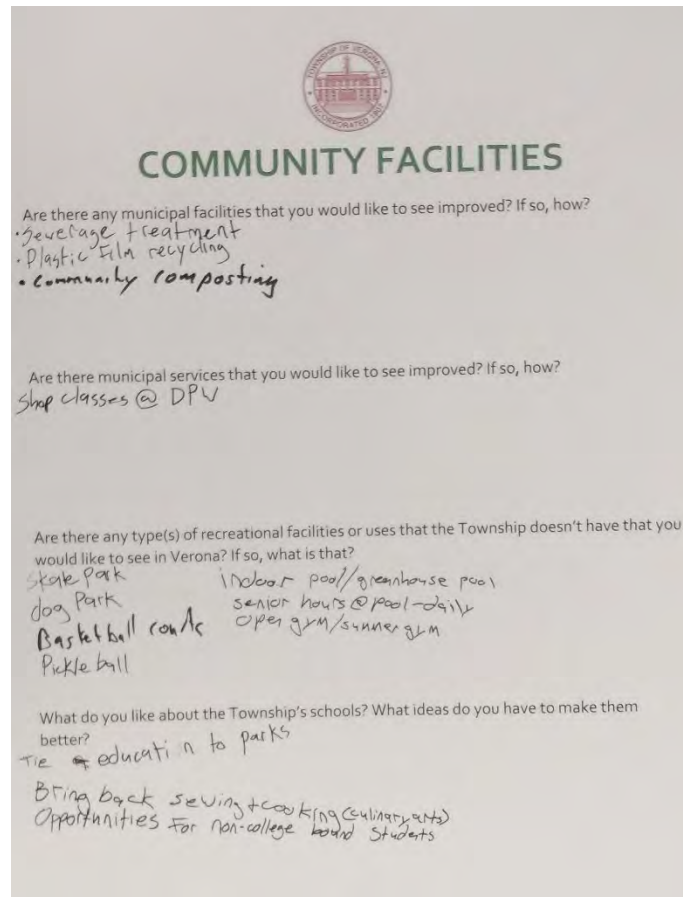 TOWNSHIP OF VERONA, NJ
INCORPORATED 1907
COMMUNITY FACILITIES
Are there any municipal facilities that you would like to see improved? If so, how?
• Severage treatment
• Plastic Film recycling
• Community composting
Are there municipal services that you would like to see improved? If so, how?
Shop classes @ DPW
Are there any type(s) of recreational facilities or uses that the Township doesn't have that you
would like to see in Verona? If so, what is that?
Skate Park
dog Park
Basketball courts
Pickle ball
indoor pool/greenhouse pool
senior hours @ pool-daily
open gym/summer gym
What do you like about the Township's schools? What ideas do you have to make them
better?
Tie educati n to parks
Bring back sewing + cooking (culinary arts)
Opportunities For non-college bound Students